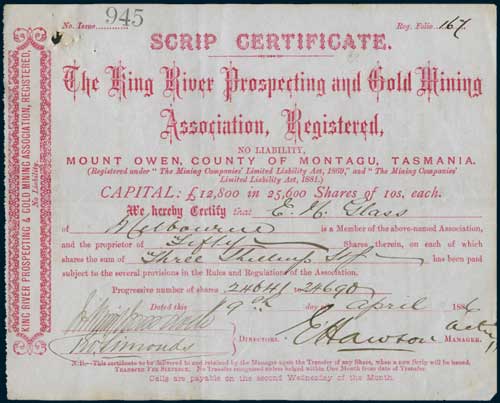 No. Issue 945
Reg. Folio 167
SCRIP CERTIFICATE.
The King River Prospecting and Gold Mining
Association, Registered,
NO LIABILITY,
MOUNT OWEN, COUNTY OF MONTAGU, TASMANIA.
(Registered under "The Mining Companies' Limited Liability Act, 1869," and "The Mining Companies'
Limited Liability Act, 1881.)
CAPITAL: £12,800 in 25,600 Shares of 10s. each.
We hereby Certify that E. H. Glass
of Melbourne is a Member of the above-named Association,
and the proprietor of Fifty Shares therein, on each of which
shares the sum of Three Shillings has been paid
subject to the several provisions in the Rules and Regulations of the Association.
Progressive number of shares 24641 to 24690
Dated this 9th day of April 188
DIRECTORS.
E Hawson MANAGER.
Simonds
N.B.—This certificate to be delivered to and retained by the Manager upon the Transfer of any Share, when a new Scrip will be issued.
TRANSFER FEE SIXPENCE. No Transfer recognised unless lodged within One Month from date of Transfer.
Calls are payable on the second Wednesday of the Month.
KING RIVER PROSPECTING & GOLD MINING ASSOCIATION, REGISTERED,
No Liability.